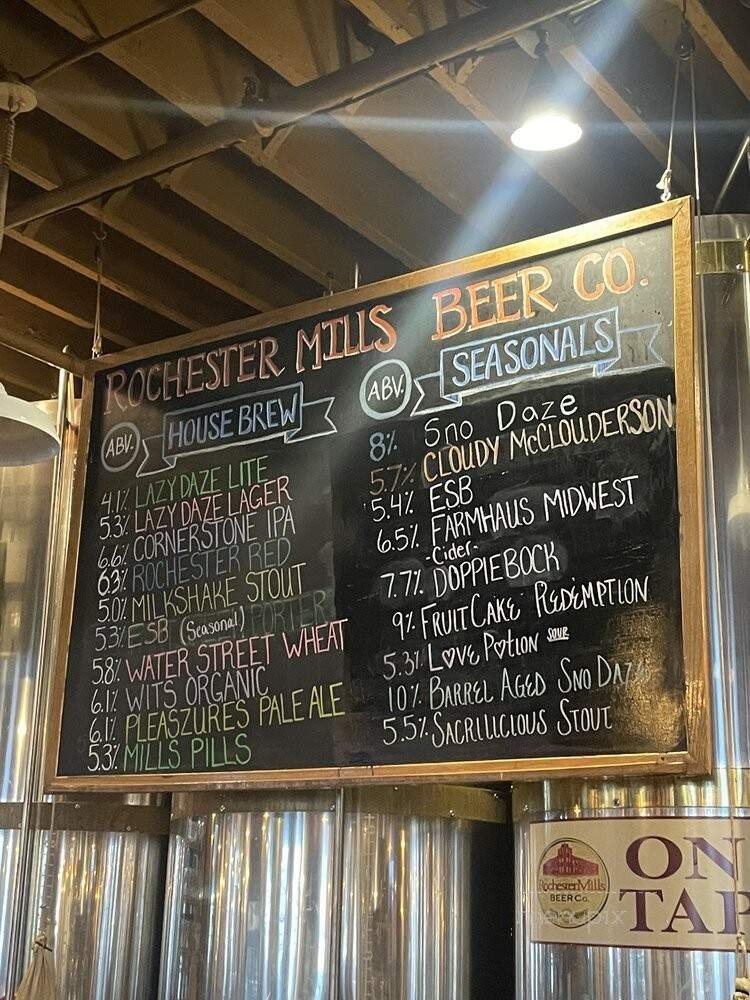 ROCHESTER MILLS BEER CO.
ABV. HOUSE BREW
4.1% LAZY DAZE LITE
5.3% LAZY DAZE LAGER
6.6% CORNERSTONE IPA
6.3% ROCHESTER RED
5.0% MILKSHAKE STOUT
5.3% ESB (Seasonal) PORTER
5.8% WATER STREET WHEAT
6.1% WITS ORGANIC
6.1% PLEASZURES PALE ALE
5.3% MILLS PILLS
ABV. SEASONALS
8% Sno Daze
5.7% CLOUDY McCLOUDERSON
5.4% ESB
6.5% FARMHAUS MIDWEST
-Cider-
7.7% DOPPIEBOCK
9% FRUITCAKE REDEMPTION
5.3% LOVE POTION SOUR
10% BARREL AGED SNO DAZE
5.5% SACRILICIOUS STOUT
Rochester Mills
BEER Co.
ON
TAP